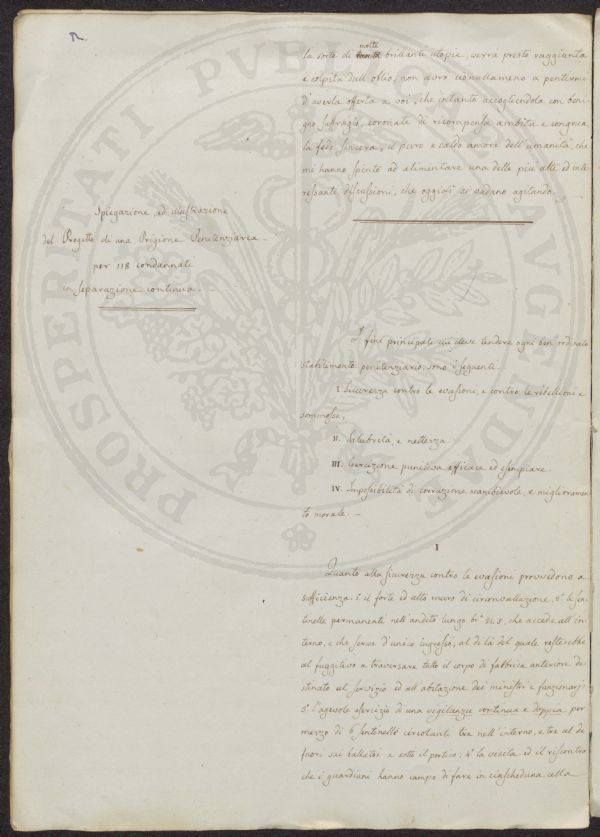 la sorte di molte brillanti utopie, verrà presto raggiunta
e colpita dall'oblio, non avrò cionullameno a pentirmi
d'averla offerta a voi, che intanto accogliendola con beni-
gno suffragio, coronate di ricompensa ambita e congrua
la fede sincera, il puro e caldo amore dell'umanità, che
mi hanno spinto ad alimentare una delle più alte ed inte-
ressanti discussioni, che oggidì si vadano agitando.
Spiegazione, ed illustrazione
del Progetto di una Prigione Penitenziaria
per 118 condannati
in separazione continua
I fini principali cui deve tendere ogni ben ordinato
stabilimento penitenziario, sono i seguenti
I Sicurezza contro le evasioni, e contro le ribellioni e
sommosse,
II. Salubrità, e nettezza
III. Coercizione punitiva efficace ed esemplare
IV. Impossibilità di corruzione scambievole, e miglioramen
to morale.
I
Quanto alla sicurezza contro le evasioni provvedono a
sufficienza. 1° il forte ed alto muro di circonvallazione, 2° le sen
tinelle permanenti nell'andito lungo che accede all'in
terno, e che serve d'unico ingresso, al di là del quale resterebbe
al fuggitivo a traversare tutto il corpo di fabbrica anteriore de
stinato al servizio ed all'abitazione dei ministri e funzionarj:
3° l'agevole esercizio di una vigilanza continua e doppia per
mezzo di 6 sentinelle circolanti tre nell'interno, e tre al di
fuori sui ballatoi e sotto il portico; 4° la visita ed il riscontro
che i guardiani hanno campo di fare in ciascheduna cella
PROSPERITATI PUBLICAE AUGENDAE